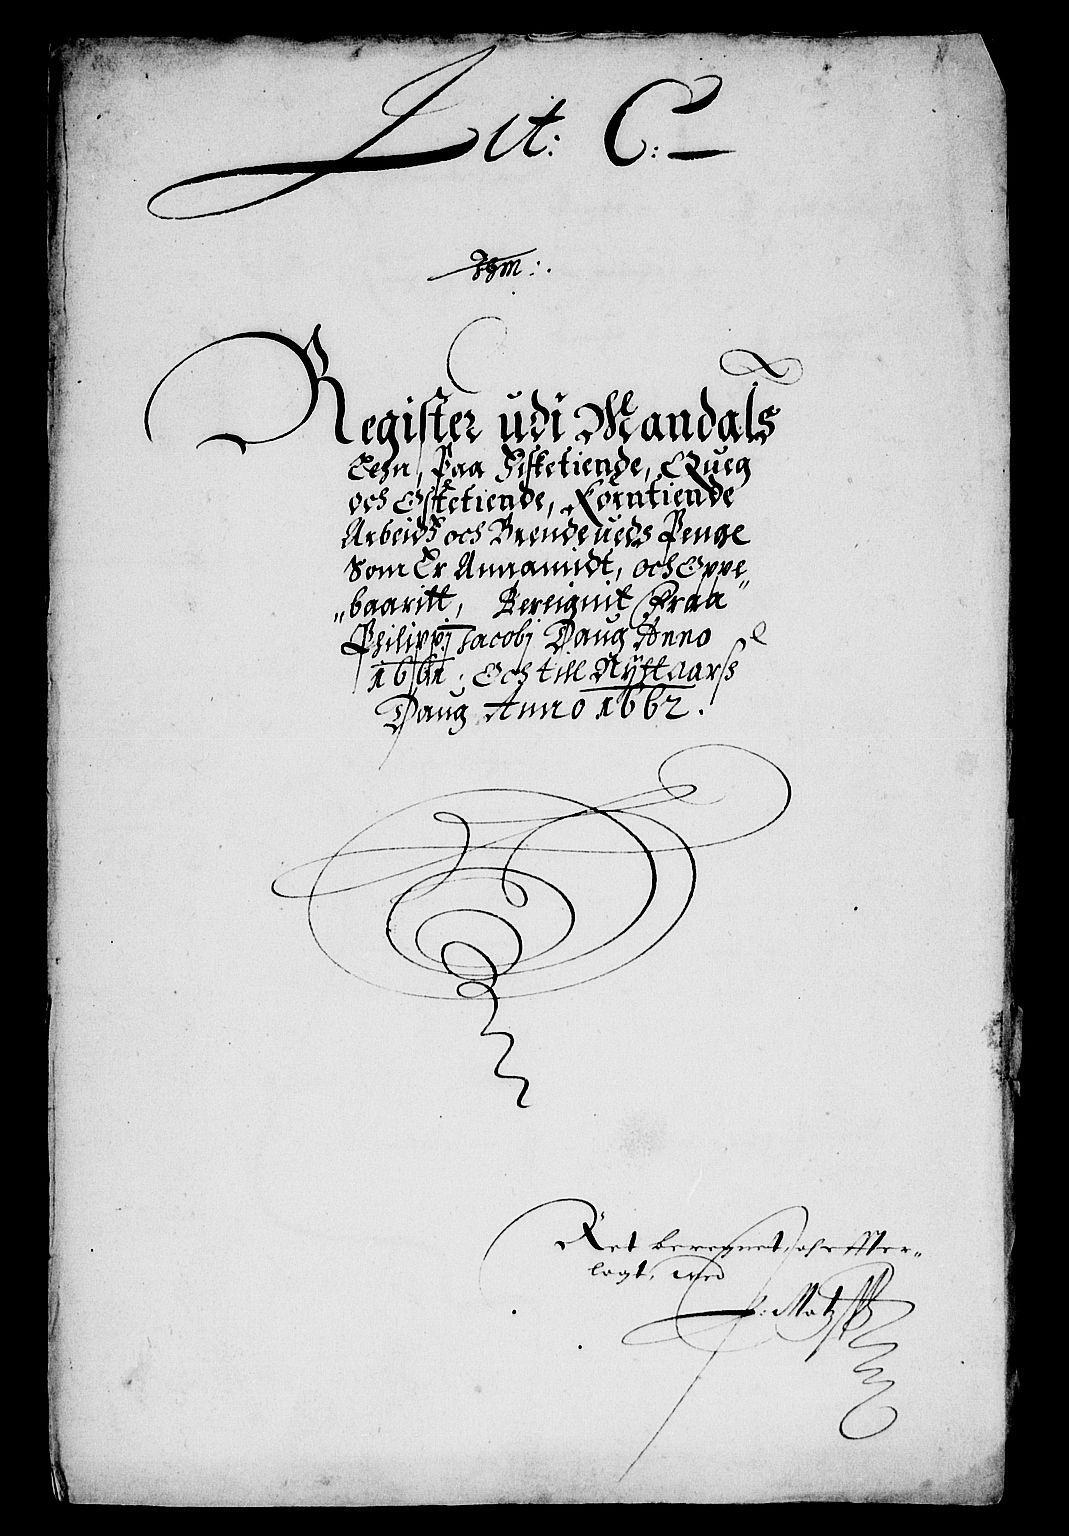 Lit: C:
Register udi Mandals
Lehn, Paa Fisketiende, Queg
och Ostetiende, Korntiende
Arbeids och Brendeueds Penge
Som Er Annamidt, och Oppe
„baaritt, Bereignit Fraa
Philippj Jacobj Daug Anno
1661. Och till Nÿttaars
Daug Anno 1662.
Ret beregnet, och effter-
lagt, med